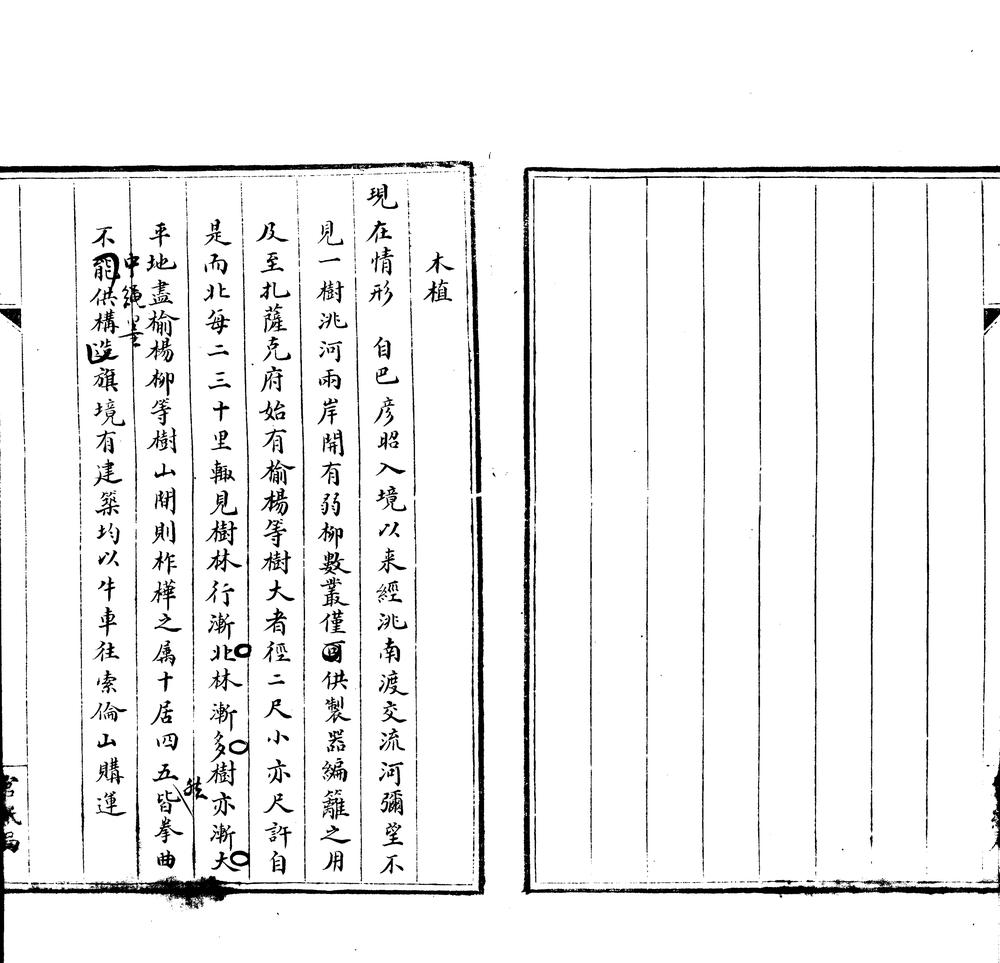 木植
現在情形　自巴彦昭入境以来經洮南渡交流河彌望不
見一樹洮河兩岸開有弱柳數叢僅可供製器編籬之用
及至扎薩克府始有榆楊等樹大者徑二尺小亦尺許自
是而北每二三十里輙見樹林行漸北林漸多樹亦漸大
平地盡榆楊柳等樹山間則柞樺之属十居四五然皆拳曲
不中繩墨能供構造旗境有建築均以牛車往索倫山購運
官紙局